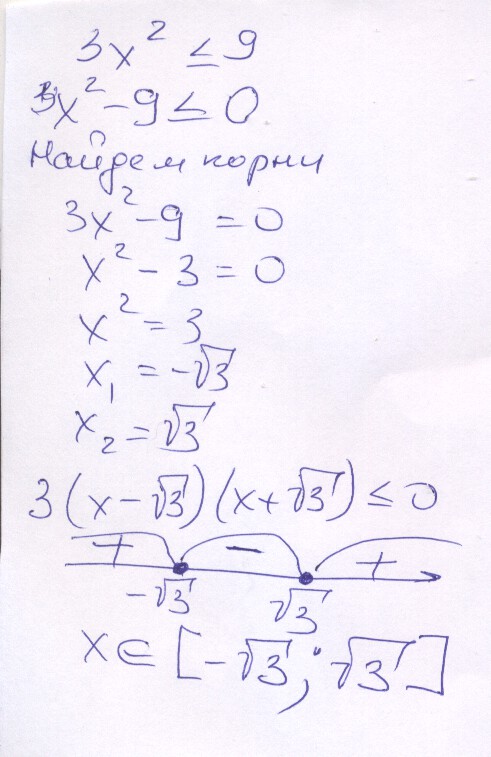 3x² ≤ 9
3x² - 9 ≤ 0
Найдем корни
3x² - 9 = 0
x² - 3 = 0
x² = 3
x₁ = -√3
x₂ = √3
3(x-√3)(x+√3) ≤ 0
+ - +
-√3 √3
x ∈ [-√3; √3]